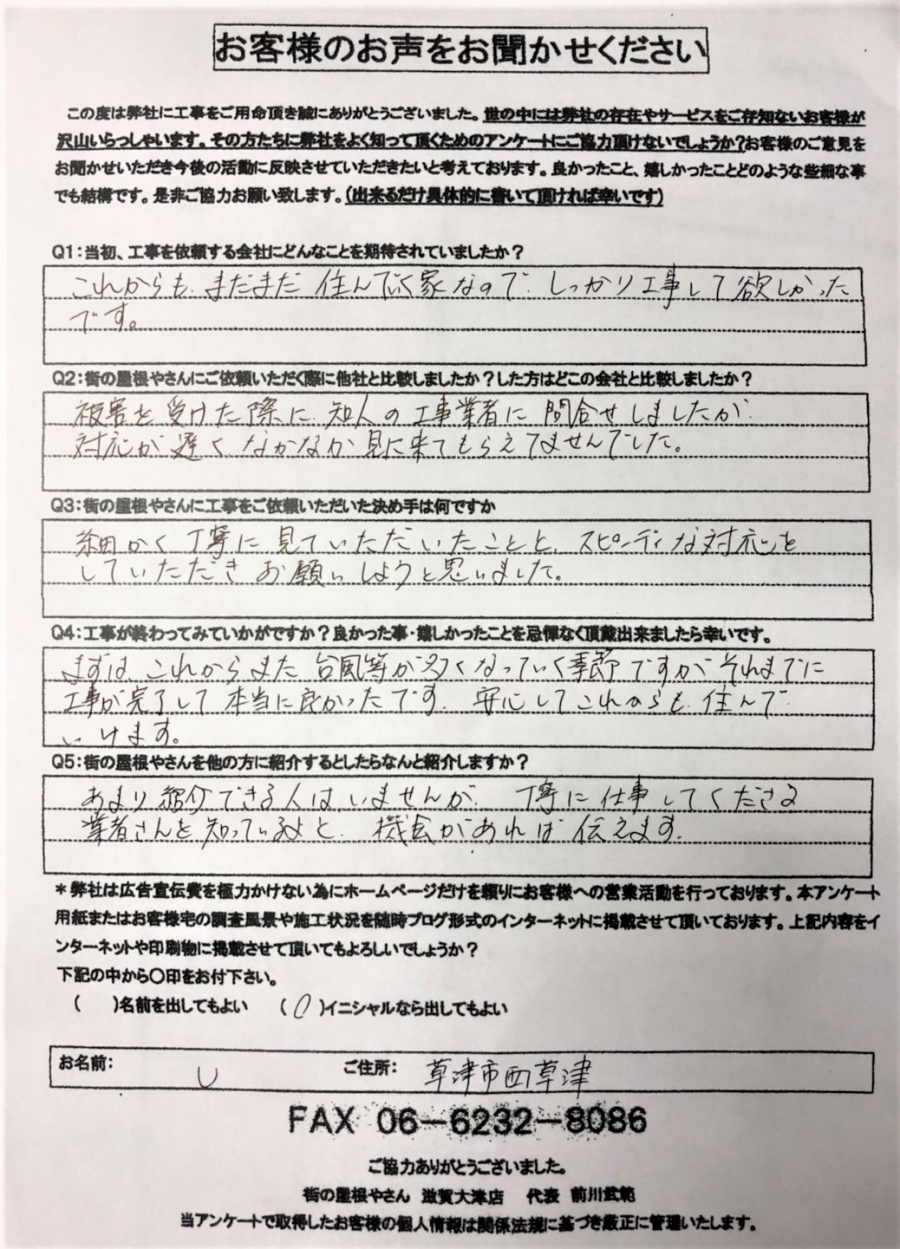 お客様のお声をお聞かせください
この度は弊社に工事をご用命頂き誠にありがとうございました。世の中には弊社の存在やサービスをご存知ないお客様が
沢山いらっしゃいます。その方たちに弊社をよく知って頂くためのアンケートにご協力頂けないでしょうか?お客様のご意見を
お聞かせいただき今後の活動に反映させていただきたいと考えております。良かったこと、嬉しかったことどのような些細な事
でも結構です。是非ご協力お願い致します。(出来るだけ具体的に書いて頂ければ幸いです)
Q1:当初、工事を依頼する会社にどんなことを期待されていましたか?
これからも、まだまだ 住んでいく家なので、しっかり工事して欲しかった
です。
Q2:街の屋根やさんにご依頼いただく際に他社と比較しましたか?した方はどこの会社と比較しましたか?
被害を受けた際に、知人の工事業者に 問合せしましたが、
対応が遅く なかなか見に来てもらえてませんでした。
Q3:街の屋根やさんに工事をご依頼いただいた決め手は何ですか
細かく丁寧に見ていただいたことと、スピーディな対応を
していただき お願いしようと思いました。
Q4:工事が終わってみていかがですか?良かった事・嬉しかったことを忌憚なく頂戴出来ましたら幸いです。
まずは、これからまた 台風等が多くなっていく季節ですが それまでに
工事が完了して 本当に良かったです。安心してこれからも 住んで
いけます。
Q5:街の屋根やさんを他の方に紹介するとしたらなんと紹介しますか?
あまり紹介できる人はいませんが、丁寧に仕事してくださる
業者さんを知っているよと、機会があれば 伝えます。
*弊社は広告宣伝費を極力かけない為にホームページだけを頼りにお客様への営業活動を行っております。本アンケート
用紙またはお客様宅の調査風景や施工状況を随時ブログ形式のインターネットに掲載させて頂いております。上記内容をイ
ンターネットや印刷物に掲載させて頂いてもよろしいでしょうか?
下記の中から〇印をお付下さい。
( )名前を出してもよい (〇)イニシャルなら出してもよい
お名前: U ご住所: 草津市西草津
FAX 06-6232-8086
ご協力ありがとうございました。
街の屋根やさん 滋賀大津店 代表 前川武範
当アンケートで取得したお客様の個人情報は関係法規に基づき厳正に管理いたします。